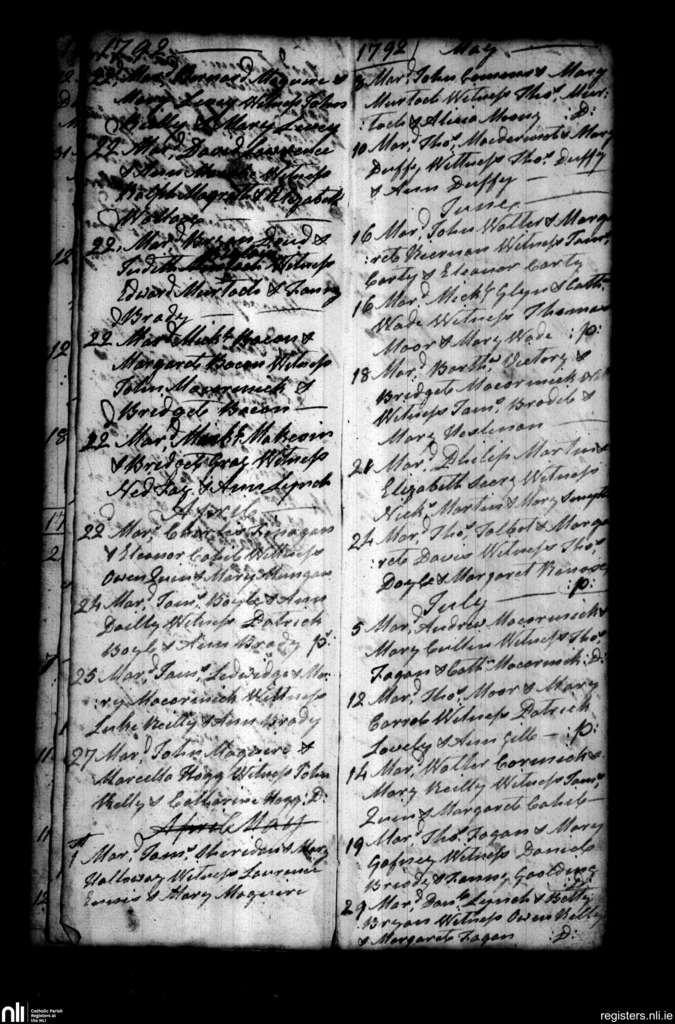 1792
22 Mar.d Bernard Maguire &
Mary Witness John
Reilly & Mary
22 Mar.d David Lawrence
& Ann Witness
Ralph Magrath & Elizabeth
Wallace
22 Mar.d &
Judith Witness
Edward Murtock & Fanny
Brady
22 Mar.d Mich.l Bacon &
Margaret Bacon Witness
John Macormick &
Bridget Bacon
22 Mar.d Makeoin
& Bridget Gray Witness
Ned Fay & Ann Lynch
Aprill
22 Mar.d Charles Finagan
& Eleanor Cahill Wittness
Owen Quin & Mary Mungan
24 Mar.d Jam.s Boyle & Ann
Dailly Witness Patrick
Boyle & Ann Brady p:
25 Mar.d Jam.s Ledwidge & Ma:
:ry Macormick Wittness
Luke Reilly & Ann Brady
27 Mar.d John Maguire &
Marcella Hogg Witness John
Kelly & Catharine Hogg :D:
April May
1st Mar.d Jam.s Sheridan & Mary
Halloway Witness Laurence
Ennis & Mary Maguire
1792 May
8 Mar.d John & Mary
Murtock Witness Tho.s Mur:
:tock & Alicia Moony :D:
10 Mar.d Tho.s & Mary
Duffy Wittness Tho.s Duffy
& Ann Duffy
June
16 Mar.d John Walter & Marga
:ret Kiernan Witness Jam.s
Carty & Eleanor Carty
16 Mar.d Mich.l Glyn & Cath.
Wade Witness Thomas
Moor & Mary Wade :p:
18 Mar.d Barth.w Victory &
Bridget Macormick
Witness Jam.s &
Mary
21 Mar.d Philip Martin &
Elizabeth Witness
Nich.s Martin & Mary Smyth
24 Mar.d Tho.s Talbot & Marga
:ret Davis Witness Tho.s
Doyle & Margaret
July :p:
5 Mar.d Andrew Macormick &
Mary Cullen Witness Tho.s
Fagan & Cath. Macormick :D:
12 Mar.d Tho.s Moor & Mary
Carrol Witness Patrick
Lovely & Ann Gill :p:
14 Mar.d Walter Cormick &
Mary Reilly Witness Jam.s
Quin & Margaret Cahill
19 Mar.d Tho.s Fagan & Mary
Witness Daniel
& Fanny Goolding
29 Mar.d Dan.l Lynch & Betty
Bryan Witness Owen Reilly
& Margaret Fagan :D:
nli
Catholic Parish
Registers at
the NLI
registers.nli.ie